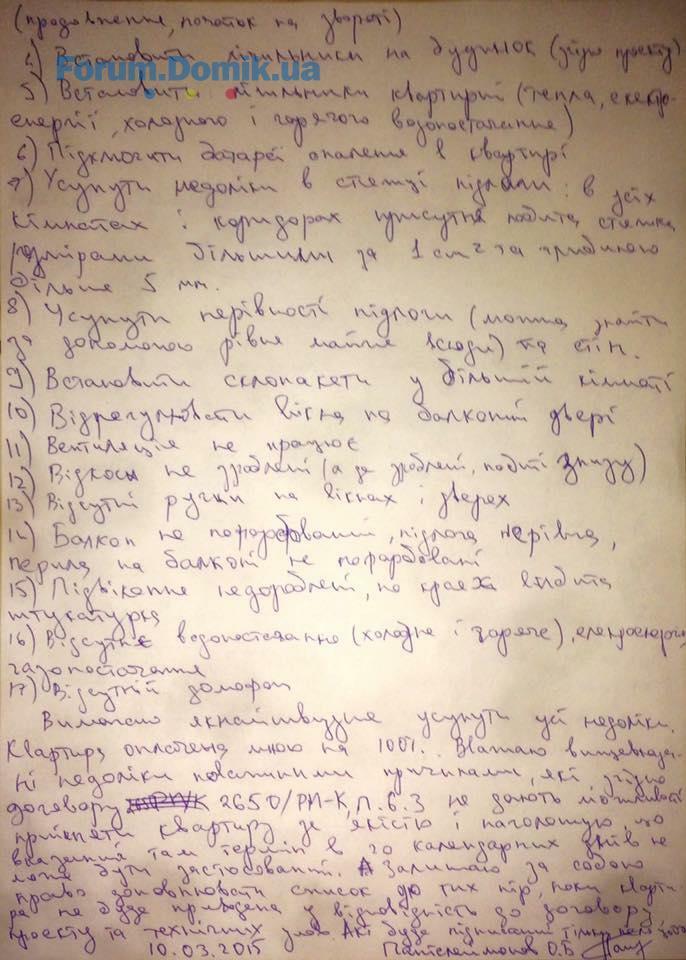 (продовження, початок на звороті)
4) Встановити лічильники на будинок (згідно проекту)
Forum.Domik.ua
5) Встановити лічильники квартирні (тепла, електро-
енергії, холодного і гарячого водопостачання)
6) Підключити батареї опалення в квартирі
7) Усунути недоліки в стяжці підлоги: в усіх
кімнатах і коридорах присутня побита стяжка
розмірами більшими за 1 cm² та глибиною
більше 5 мм.
8) Усунути нерівності підлоги (можна знайти
за допомогою рівня майже всюди) та стін.
9) Встановити склопакети у більшій кімнаті
10) Відрегулювати вікна на балконі двері
11) Вентиляція не працює
12) Відкоси не зроблені (а де зроблені, побиті знизу)
13) Відсутні ручки на вікнах і дверях
14) Балкон не пофарбований, підлога нерівна,
перила на балконі не пофарбовані
15) Підвіконня недороблені, по краях видно
штукатурка
16) Відсутнє водопостачання (холодне і гаряче), електроенергія,
газопостачання
17) Відсутній домофон
Вимагаю якнайшвидше усунути усі недоліки.
Квартира оплачена мною на 100%. Вважаю вищевказа-
ні недоліки поважними причинами, які згідно
договору 2650/РИ-К, п. 6.3 не дають можливості
прийняти квартиру за якістю і наголошую, що
вказаний там термін в 20 календарних днів не
може бути застосований. Залишаю за собою
право доповнювати список до тих пір, поки кварти-
ра не буде приведена у відповідність до договору,
проекту та технічних умов. Акт буде підписаний тільки після цього
10.03.2015 Пантелеймонов О.Б